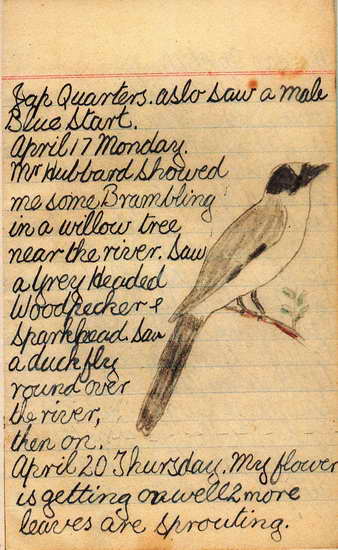 Jap Quarters. aslo saw a male
Blue Start.
April 17 Monday.
Mr Hubbard showed
me some Brambling
in a willow tree
near the river. Saw
a Grey Headed
Woodpecker &
Sparkhead saw
a duck fly
round over
the river,
then on.
April 20 Thursday. My flower
is getting on well 2 more
leaves are sprouting.